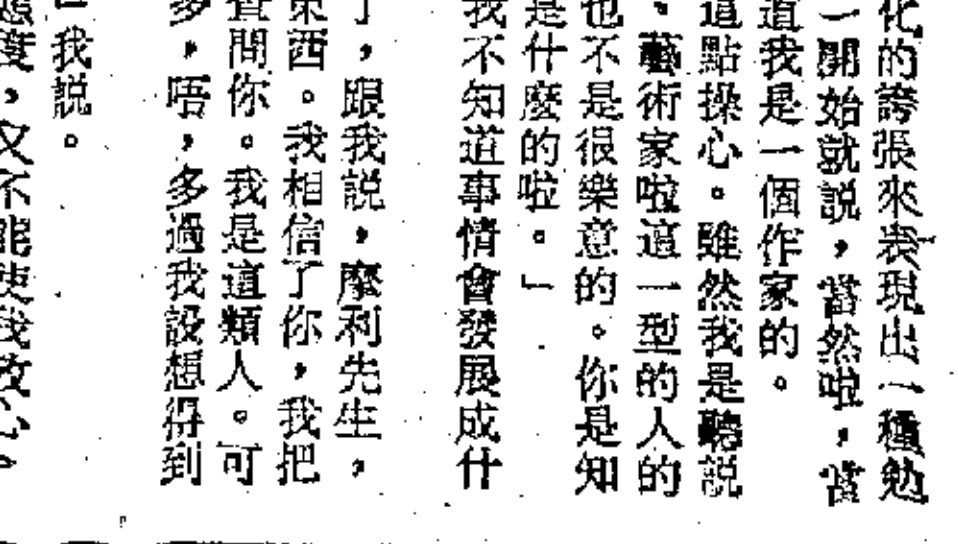 化的誇張來表現出一種勉
一開始就説，當然啦，當
道我是一個作家的。
這點操心。雖然我是聽説
。藝術家啦這一型的人的
也不是很樂意的。你是知
是什麼的啦。」
我不知道事情會發展成什
了，跟我説，摩利先生，
東西。我相信了你，我把
查問你。我是這類人。可
多，唔，多過我設想得到
我説。
態度，又不能使我放心。